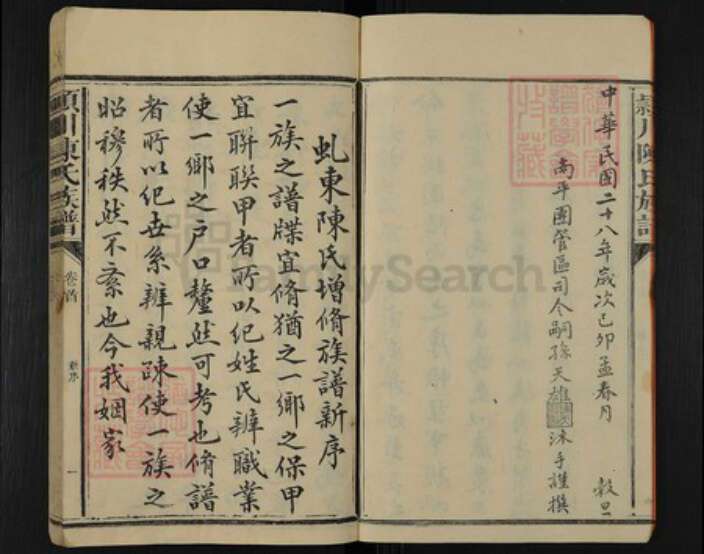 中華民國二十八年歲次己卯孟春月 穀旦
南平團管區司令嗣孫天雄沐手謹撰
潁川陳氏族譜
虬東陳氏增脩族譜新序
一族之譜牒宜脩猶之一鄉之保甲
宜聯聯甲者所以紀姓氏辨職業
使一鄉之戶口釐然可考也脩譜
者所以紀世系辨親疎使一族之
昭穆秩然不紊也今我姻家
潁川陳氏族譜
卷首
新序
一
FamilySearch